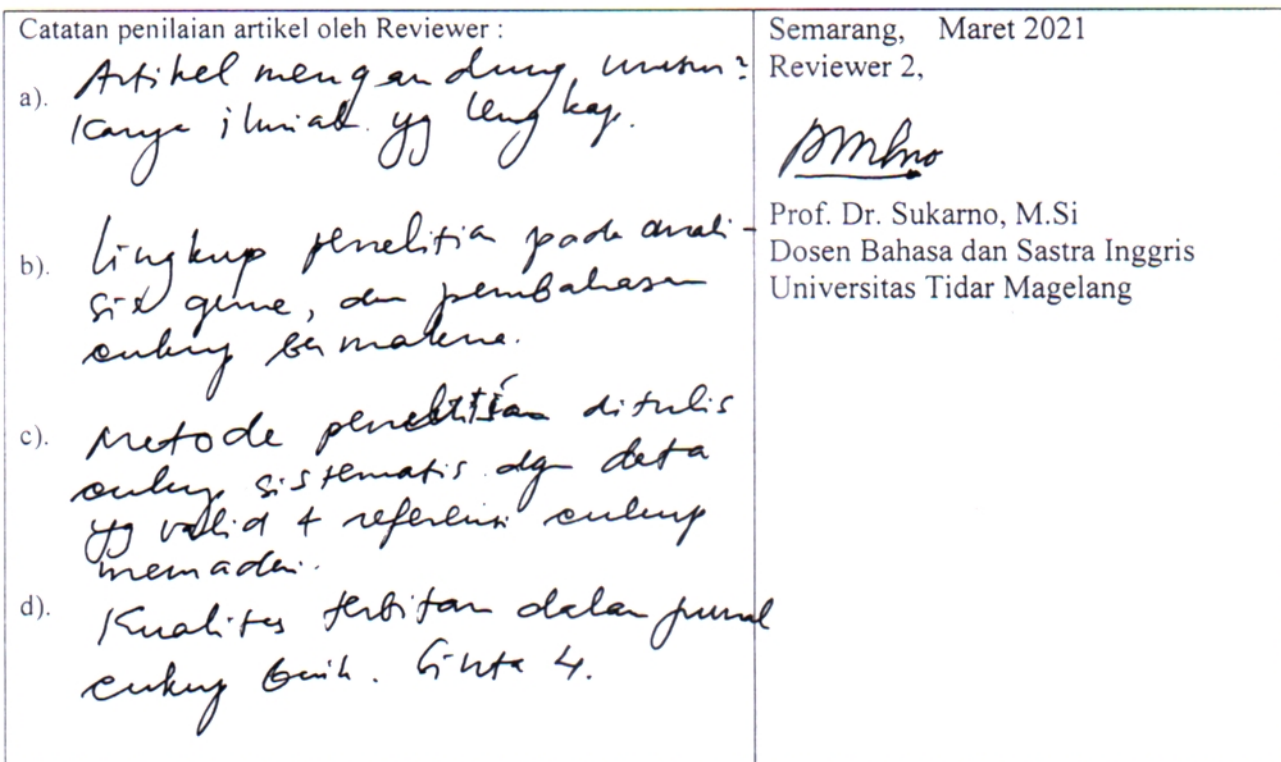 Catatan penilaian artikel oleh Reviewer :
a). Artikel mengandung unsur2
karya ilmiah yg lengkap.
b). Lingkup penelitian pada anali-
sis genre, dan pembahasan
cukup bermakna.
c). Metode penelitian ditulis
cukup sistematis dgn data
yg valid + referensi cukup
memadai.
d). Kualitas terbitan dalam jurnal
cukup baik. Sinta 4.
Semarang, Maret 2021
Reviewer 2,
Prof. Dr. Sukarno, M.Si
Dosen Bahasa dan Sastra Inggris
Universitas Tidar Magelang